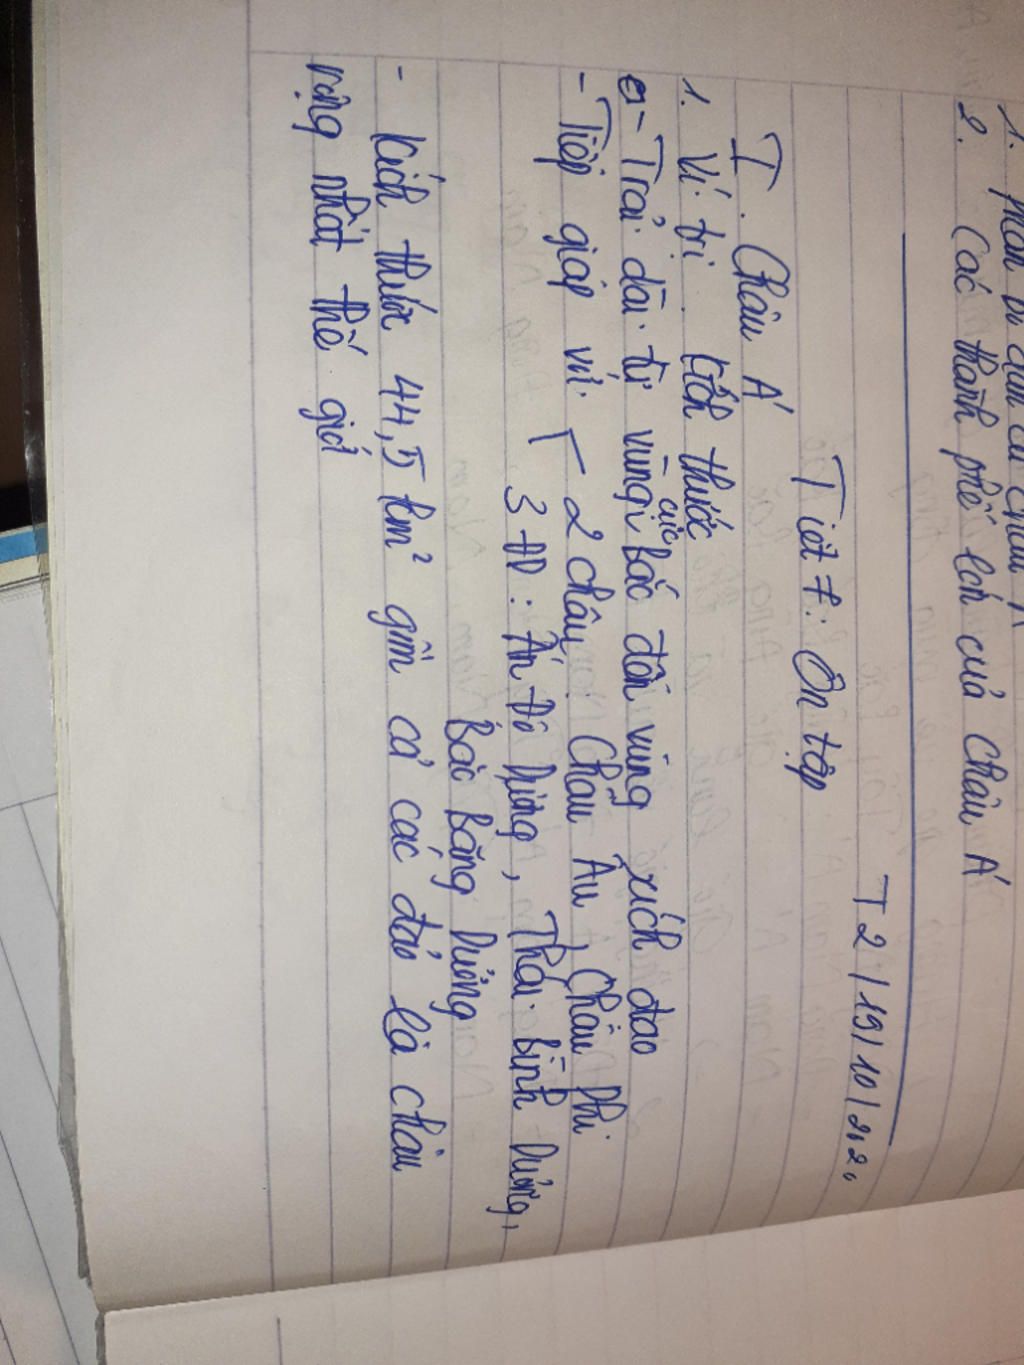 1. Phân bố dân cư châu Á
2. Các thành phố lớn của Châu Á
T2/19/10/2020
Tiết 7: Ôn tập
I. Châu Á
1. Vị trí kích thước
- Trải dài từ vùng cực bắc đến vùng xích đạo
- Tiếp giáp với 2 châu: Châu Âu, Châu Phi
3 ĐD: Ấn Độ Dương, Thái Bình Dương,
Bắc Băng Dương
- Kích thước 44,5 km² gồm cả các đảo là châu
rộng nhất thế giới